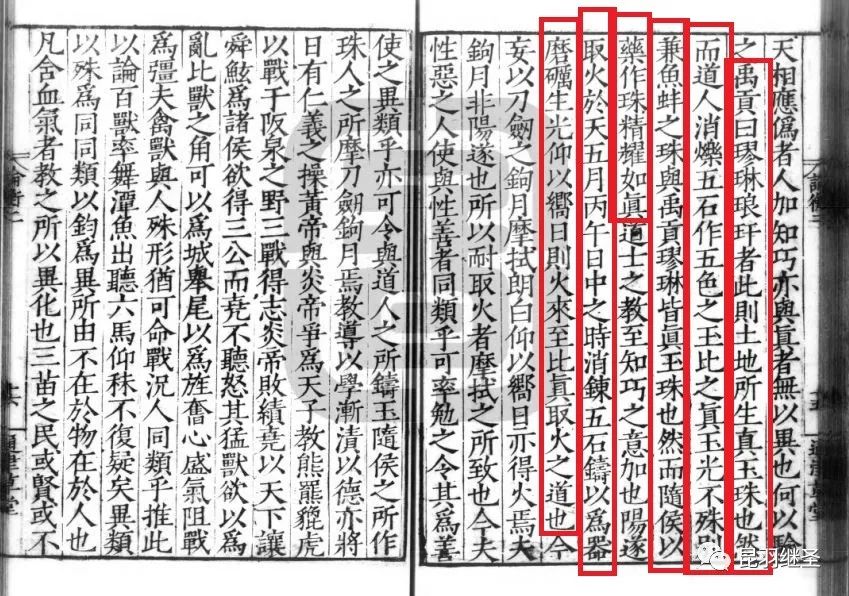 天相應僞者人加知巧亦與眞者無以異也何以驗
之禹貢曰璆琳琅玕者此則土地所生真玉珠也然
而道人消爍五石作五色之玉比之眞玉光不殊別
兼魚蚌之珠與禹貢璆琳皆眞玉珠也然而隨侯以
藥作珠精耀如眞道士之教至知巧之意加也陽遂
取火於天五月丙午日中之時消鍊五石鑄以爲器
磨礪生光仰以嚮日則火來至比眞取火之道也今
妄以刀劒之鉤月摩拭朗白仰以嚮日亦得火焉夫
鉤月非陽遂也所以耐取火者摩拭之所致也今夫
性惡之人使與性善者同類乎可率勉之令其爲善
論衡二
十五
通津草堂
使之異類乎亦可令與道人之所鑄玉隨侯之所作
珠人之所摩刀劒鉤月焉教導以學漸漬以德亦將
日有仁義之操黃帝與炎帝爭爲天子教熊羆貔虎
以戰于阪泉之野三戰得志炎帝敗績堯以天下讓
舜鯀爲諸侯欲得三公而堯不聽怒其猛獸欲以爲
亂比獸之角可以爲城舉尾以爲旌奮心盛氣阻戰
爲彊夫禽獸與人殊形猶可命戰況人同類乎推此
以論百獸率舞潭魚出聽六馬仰秣不復疑矣異類
以殊爲同同類以鈞爲異所由不在於物在於人也
凡含血氣者教之所以異化也三苗之民或賢或不
論衡二
十六
通津草堂
昆羽继圣